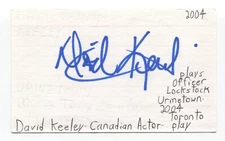 2004
plays
Officer
Lockstock
Urinetown
2004
Toronto
play
David Keeley Canadian Actor